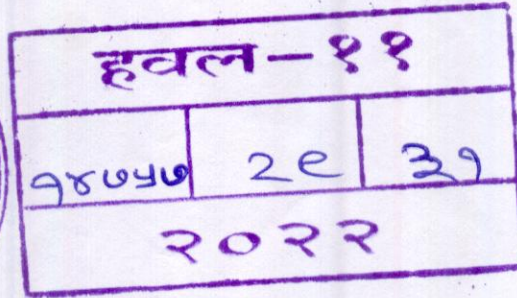 हवल-११
१४७५७ २९ ३१
२०२२